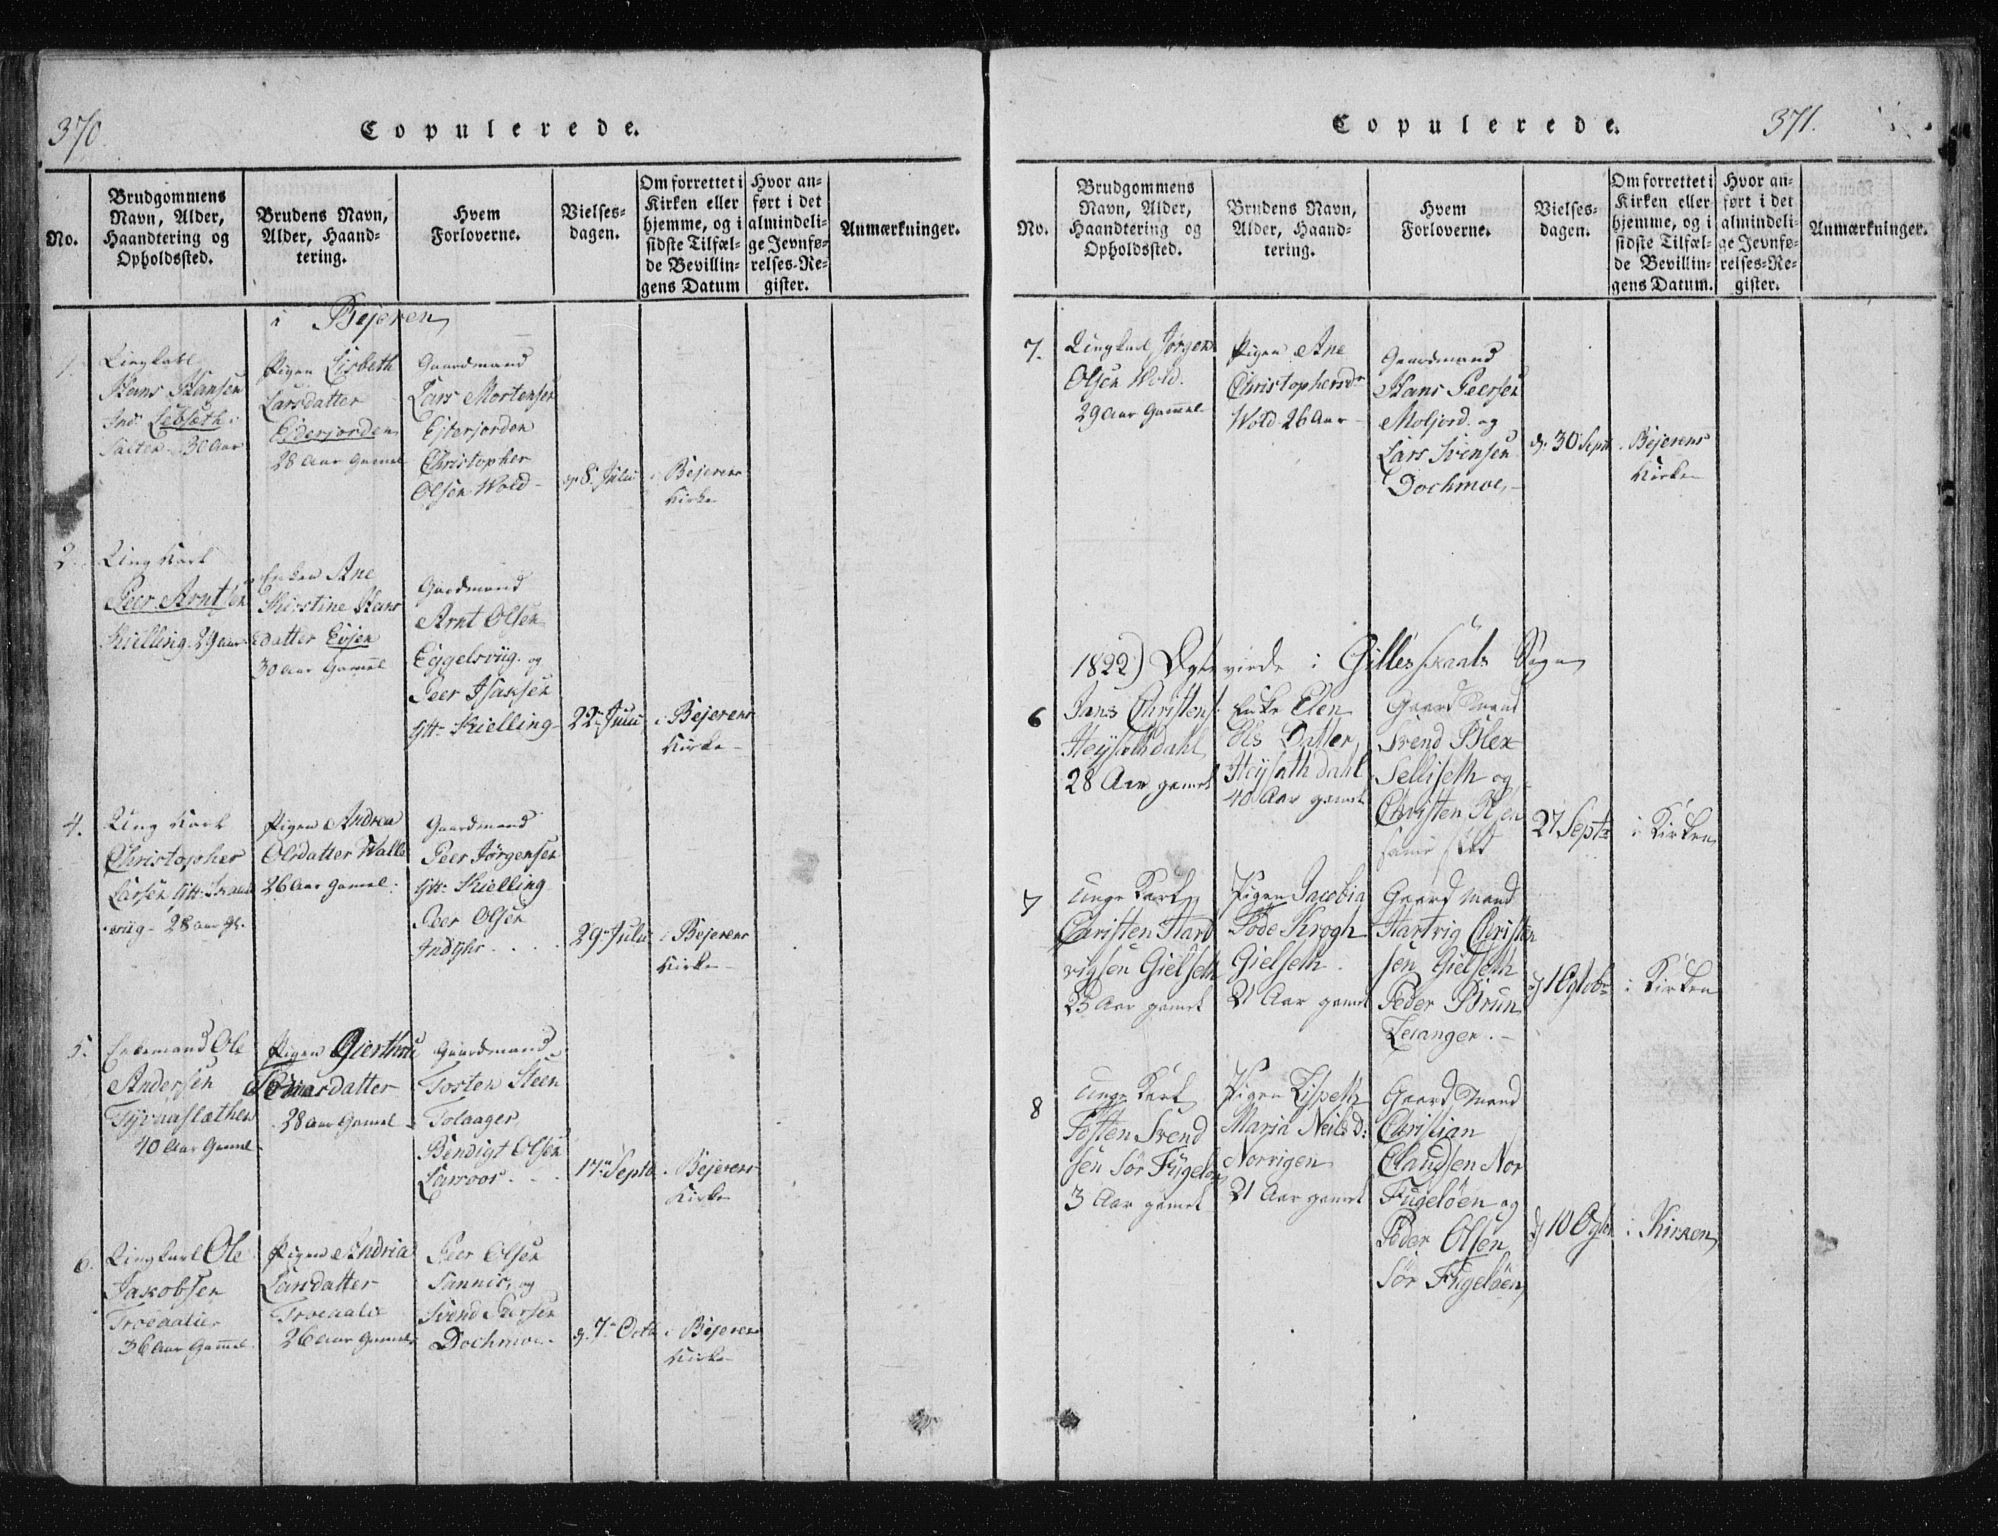 370.
Copulerede.
No.
Brudgommens
Navn, Alder,
Haandtering og
Opholdssted.
Brudens Navn,
Alder, Haand-
tering.
Hvem
Forloverne.
Vielses-
dagen.
Om forrettet i
Kirken eller
hjemme, og i
sidste Tilfæl-
de Bevillin-
gens Datum
Hvor an-
ført i det
almindeli-
ge Jevnfø-
relses-Re-
gister.
Anmærkninger.
i Bejeren
1.
Ungkarl
Hans Hansen
Ind: Lebseth i
Salten 30 Aar
Pigen Lisbeth
Larsdatter
Eiterjorden
28 Aar Gamel
Gaardmand
Lars Mortensen
Ejterjorden
Christopher
Olsen Wold
d. 8 Julii
i Bejerens
Kirke
2.
Ung Karl
Peer Arntsen
Kielling 29 Aar
Enken Ane
Kirstine Hans
datter Evjen
30 Aar Gamel
Gaardmand
Arnt Olsen
Eggelsviig og
Peer Isaksen
Ytt: Kielling
22 Julii
i Bejerens
Kirke
4.
Ung Karl
Christopher
Larsen, Ytt:
viig 28 Aar Gl.
Pigen Andrea
Olsdatter Walle
26 Aar Gamel
Gaardmand
Peer Jørgensen
Ytt: Kielling
Peer Olsen
Indyhr
29 Julii
i Bejerens
Kirke
5.
Enkemand Ole
Andersen
Tvervaaslæthen
40 Aar Gamel
Pigen Gierthru
datter
28 Aar Gamel
Gaardmand
Tosten Steen
Tolaager
Bendigt Olsen
Larsoos
17 Septb
i Bejerens
Kirke
6.
Ungkarl Ole
Jakobsen
Troeaalie
36 Aar Gammel
Pigen Andria
Larsdatter
Troeaalie
26 Aar Gamel
Peer Olsen
Sannis, og
Svend Peersen
Dochmoe
d. 7 Octb
i Bejerens
Kirke
Copulerede.
371.
No.
Brudgommens
Navn, Alder,
Haandtering og
Opholdssted.
Brudens Navn,
Alder, Haand-
tering.
Hvem
Forloverne.
Vielses-
dagen.
Om forrettet i
Kirken eller
hjemme, og i
sidste Tilfæl-
de Bevillin-
gens Datum.
Hvor an-
ført i det
almindeli-
ge Jevnfø-
relses-Re-
gister.
Anmærkninger.
7.
Ungkarl Jørgen
Olsen Wold.
29 Aar Gammel
Pigen Ane
Christophersdr
Wold 26 Aar
Gaardmand
Hans Peersen
Moljord og
Lars Svensen
Dochmoe
d. 30 Septr
i Bejerens
Kirke
1822) Egteviede i Gillesskaals Sogn
6
Jens Christens:
Høysethdahl
28 Aar gamel
Enke Elen
Ols Datter
Høysethdahl
40 Aar gamel
Gaard Mand
Svend Blex
Selliseth og
Christen Røen
samestæd
27 Septr
i Kirken
7
unge Karl
Christen Hart
vigsen Gielseth
25 Aar gamel
Pigen Jacobia
Røde Krogh
Gielseth
21 Aar gamel
Gaard Mand
Hartvig Christen
sen Gielseth
Peder Brun
Leianger
d 1 Octobr
i Kirken
8
unge Karl
Tosten Svend
sen Sør Fugeløe
3 Aar gamel
Pigen Lispeth
Maria Neils d:
Norvigen
21 Aar gamel
Gaard Mand
Christian
Claudsen Nor
Fugeløen og
Peder Olsen
Sør Fugeløen
d 10 Octbr
i Kirken